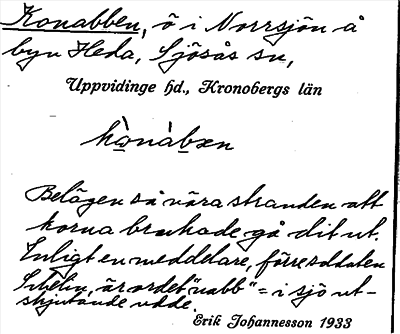 Konabben, ö i Norrsjön å
byn Heda, Sjösås sn,
Uppvidinge hd., Kronobergs län
kọ̀nàbxn
Belägen så nära stranden att
korna brukade gå dit ut.
Enligt en meddelare, förre soldaten
är ordet "nabb" = i sjö ut-
skjutande udde.
Erik Johannesson 1933